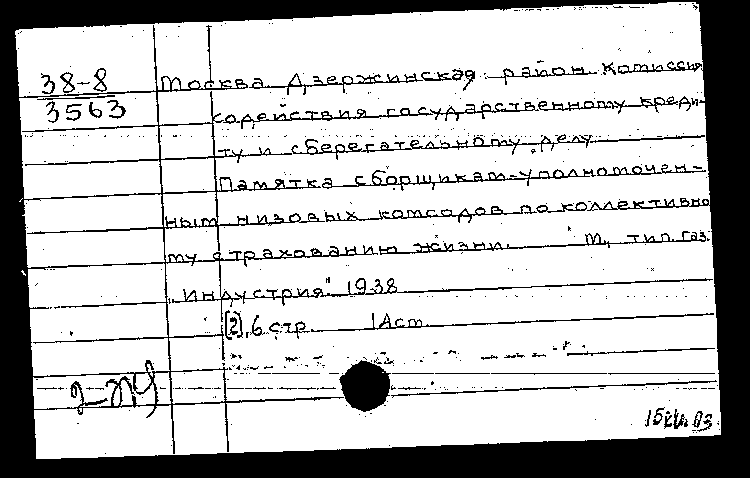 38-8
3563
Москва. Дзержинская район. Комиссия
содействия государственному креди-
ту и сберегательному делу
Памятка сборщикам-уполномочен-
ным низовых комсодов по коллективно
му страхованию жизни. М., тип. газ.
„Индустрия" 1938
[2], 6 стр. 1 Аст